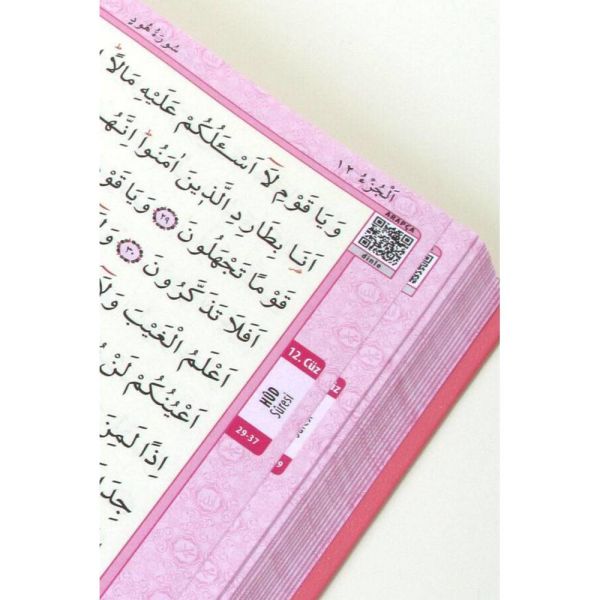 سُورَةُ هُودٍ
اَلْجُزْءُ ١٢
وَيَا قَوْمِ لَٓا اَسْـَٔلُكُمْ عَلَيْهِ مَالًاۜ
اَنَا۬ بِطَارِدِ الَّذ۪ينَ اٰمَنُواۜ اِنَّهُ
قَوْمًا تَجْهَلُونَ ٢٩ وَيَا قَوْ
اَفَلَا تَذَكَّرُونَ ٣٠ وَلَٓا
اَعْلَمُ الْغَيْبَ وَلَا
اَعْيُنُكُمْ لَنْ
اِذًا لَمِنَ
جِدَا
ARAPÇA
dinle
12. Cüz
HÛD
Sûresi
29-37